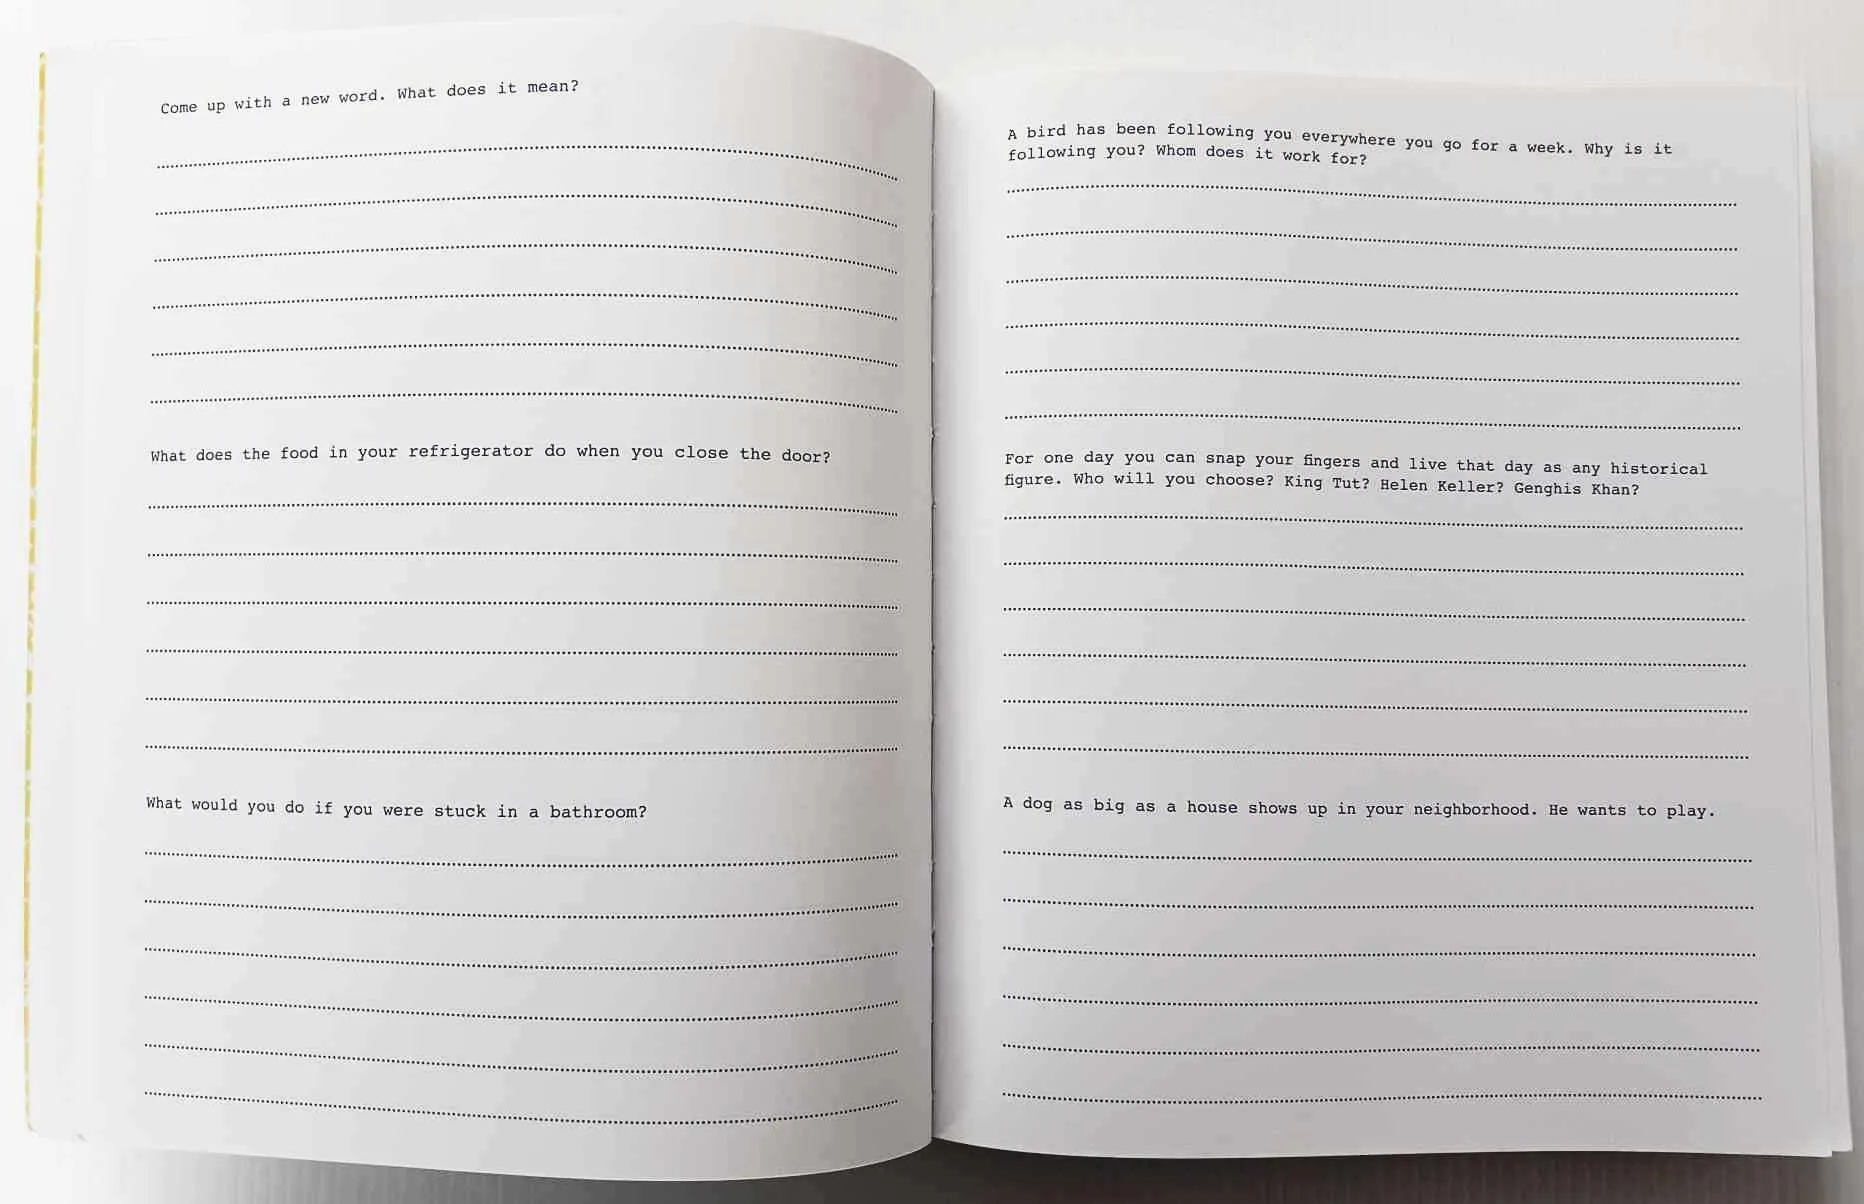 Come up with a new word. What does it mean?
What does the food in your refrigerator do when you close the door?
What would you do if you were stuck in a bathroom?
A bird has been following you everywhere you go for a week. Why is it
following you? Whom does it work for?
For one day you can snap your fingers and live that day as any historical
figure. Who will you choose? King Tut? Helen Keller? Genghis Khan?
A dog as big as a house shows up in your neighborhood. He wants to play.